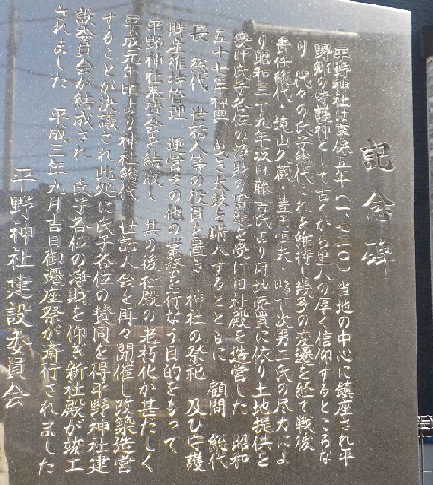 記念碑
平野神社は享保五年(一、七二〇)当地の中心に鎮座され平
野郷の守護神として古くから里人の厚く信仰するところな
り 代々の氏子総代これを維持し幾多の変遷を経て戦後
責任総代 遠山久蔵 男二氏の尽力によ
り昭和三十九年坂口藤吉氏より用地売買に依り土地提供を
受け氏子各位の浄財の寄進を受け旧社殿を造営した 昭和
五十七年神輿 太鼓を購入するとともに 顧問 総代
長 総代 世話人等の役員を置き 神社の祭祀 及び守護
財産維持管理 運営その他の業務を行なう目的をもって
平野神社奉賛会を結成し 其の後社殿の老朽化が甚だしく
平成元年頃より神社総代 世話人会を再々開催し改築造営
することが決議され此処に氏子各位の賛同を得平野神社建
設委員会が結成され 氏子各位の浄財を仰ぎ新社殿が竣工
されました 平成三年九月吉日御遷座祭が斎行されました
平野神社建設委員会